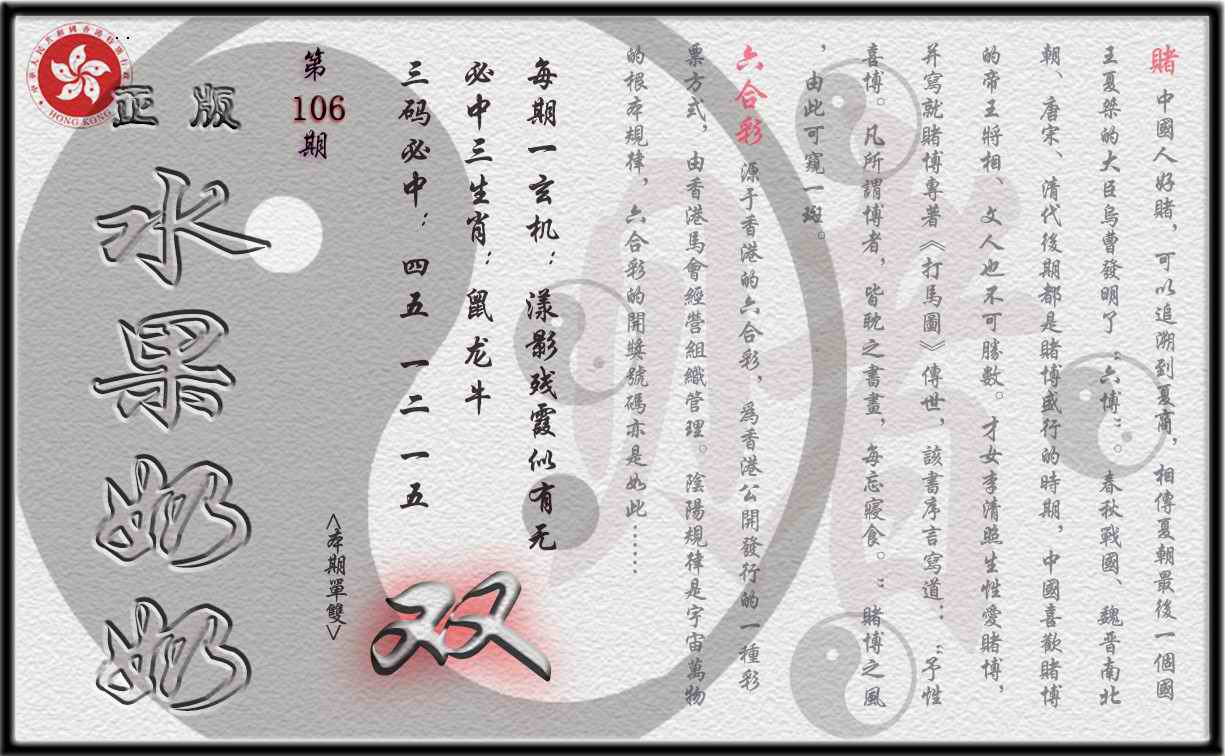 賭 中國人好賭，可以追溯到夏商，相傳夏朝最後一個國
王夏桀的大臣烏曹發明了“六博”。春秋戰國、魏晋南北
朝、唐宋、清代後期都是賭博盛行的時期，中國喜歡賭博
的帝王將相、文人也不可勝數。才女李清照生性愛賭博，
并寫就賭博專著《打馬圖》傳世，該書序言寫道：“予性
喜博。凡所謂博者，皆耽之書畫，每忘寢食。”賭博之風
，由此可窺一斑。
六合彩 源于香港的六合彩，爲香港公開發行的一種彩
票方式，由香港馬會經營組織管理。陰陽規律是宇宙萬物
的根本規律，六合彩的開獎號碼亦是如此……
每期一玄机：漾影残霞似有无
必中三生肖：鼠龙牛
三码必中：四五 一二 一五
<本期單雙>
双
第
106
期
正版
水果奶奶
中華人民共和國香港特別行政區
HONG KONG
赌